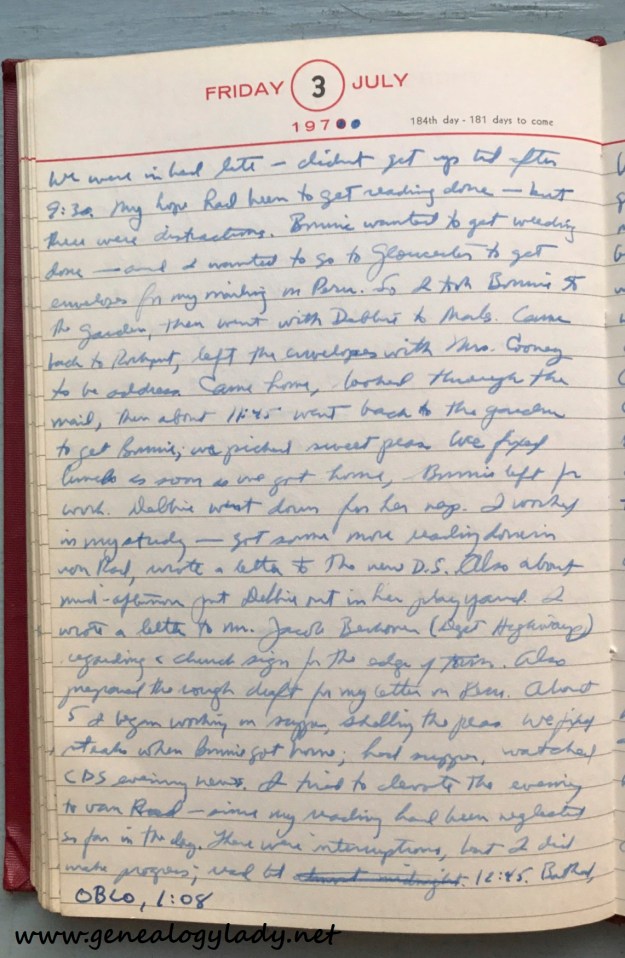 FRIDAY 3 JULY
197
184th day - 181 days to come
We were in bed late — didn't get up til after
9:30. My hope had been to get reading done — but
there were distractions. Bonnie wanted to get weeding
done — and I wanted to go to Gloucester to get
envelopes for my mailing on Peru. So I took Bonnie to
the garden, then went with Debbie to Mals. Came
back to Rockport, left the envelopes with Mrs. Cooney
to be address. Came home, looked through the
mail, then about 11:45 went back to the garden
to get Bonnie; we picked sweet peas. We fixed
lunch as soon as we got home, Bonnie left for
work. Debbie went down for her nap. I worked
in my study — got some more reading done in
von Rad, wrote a letter to the new D.S. Also about
mid-afternoon put Debbie out in her play yard. I
wrote a letter to Mr. Jacob (Dept Highways)
regarding a church sign for the edge of town. Also
prepared the rough draft for my letter on Peru. About
5 I began working on supper, shelling the peas. We fixed
steaks when Bonnie got home; had supper, watched
CBS evening news. I tried to devote the evening
to von Rad — since my reading had been neglected
so far in the day. There were interruptions, but I did
make progress; read til almost midnight. 12:45. Bathed,
OBLO, 1:08
www.genealogylady.net